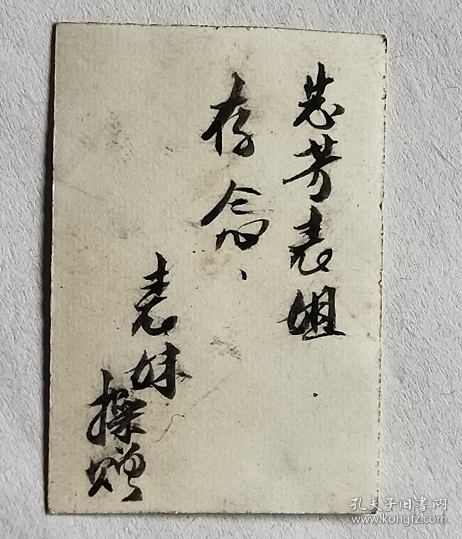 芳表姐
存念、
表妹
操赠
孔夫子旧书网
www.kongfz.com